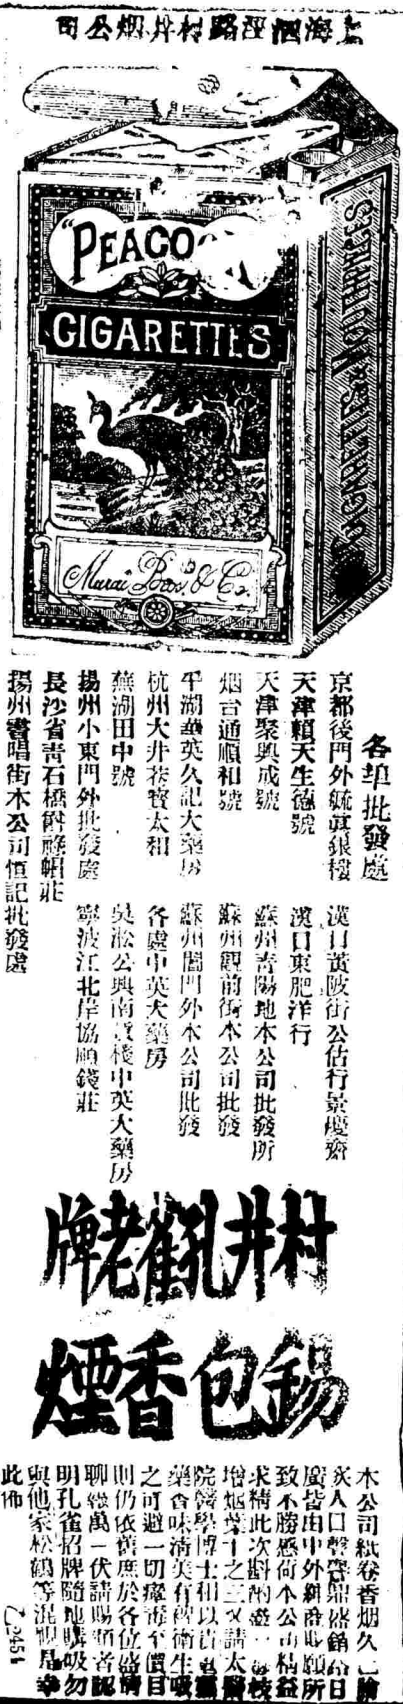 上海泗涇路村井烟公司
"PEACO
CIGARETTES
CIGARETTES
Murai Bros. & Co.
各埠批發處
京都後門外毓眞銀樓
天津賴天生德號
天津聚興成號
烟台通順和號
平湖華英久記大藥房
杭州大井巷寶太和
蕪湖田中號
揚州小東門外批發處
長沙省靑石橋帽莊
揚州書唱街本公司恒記批發處
漢口黃陂街公估行景慶齋
漢口東肥洋行
蘇州靑陽地本公司批發所
蘇州觀前街本公司批發
蘇州閶門外本公司批發
各處中英大藥房
吳淞公興南貨棧中英大藥房
寧波江北岸協順錢莊
村井孔雀老牌
錫包香煙
本公司紙卷香烟久已膾
炙人口聲譽鼎盛銷路日
廣皆由中外紳商賜顧所
致不勝感荷本公司精益
求精此次斟酌
增烟葉十之三又請太醫
院醫學博士和以貴重靈
藥香味淸美有裨衛生吸
之可避一切瘴毒至價目
則仍依舊庶於各位盛情
聊報萬一伏請賜顧者認
明孔雀招牌隨地購吸勿
與他家松鶴等混視是幸
此佈